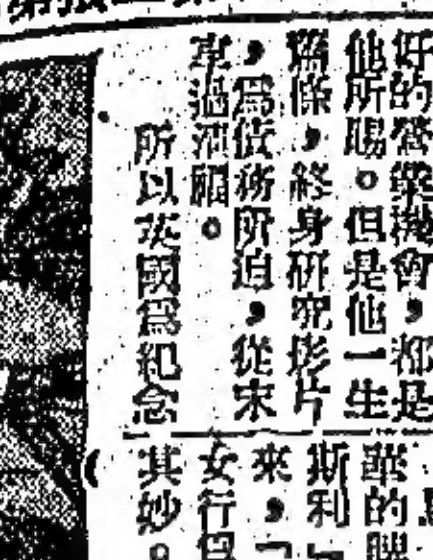 好的營業機會，都是
他所賜。但是他一生
蕭條，終身研究影片
，爲債務所迫，從未
享過清福。
所以英國爲紀念
的
斯利
來，「
女行爲
其妙。